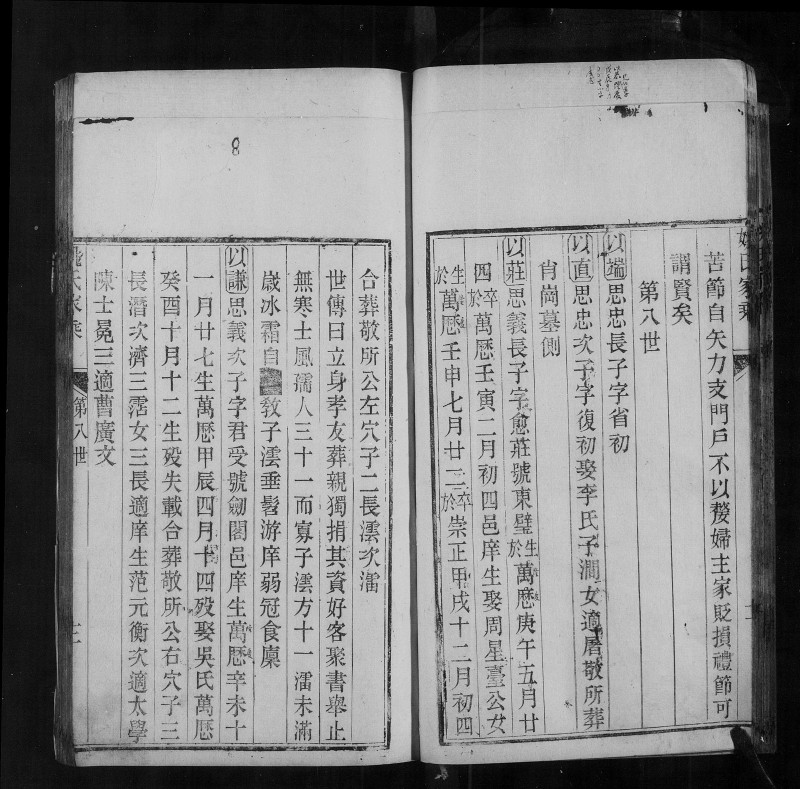 苦節自矢力支門戶不以嫠婦主家貶損禮節可
謂賢矣
第八世
以端思忠長子字省初
以直思忠次子字復初娶李氏子澗女適屠敬所葬
肖崗墓側
以莊思義長子字愈莊號東璧生於萬曆庚午五月廿
四卒於萬曆壬寅二月初四邑庠生娶周星臺公女
生於萬曆壬申七月廿三卒於崇正甲戌十二月初四
合葬敬所公左穴子二長澐次濇
世傳曰立身孝友葬親獨捐其資好客聚書舉止
無寒士風孺人三十一而寡子澐方十一濇未滿
歲冰霜自 教子澐垂髫游庠弱冠食廩
以謙思義次子字君受號劒閣邑庠生萬曆辛未十
一月廿七生萬曆甲辰四月十四歿娶吳氏萬曆
癸酉十月十二生歿失載合葬敬所公右穴子三
長潛次濟三霑女三長適庠生范元衡次適太學
陳士冕三適曹廣文
氏家乘
第八世
三
8